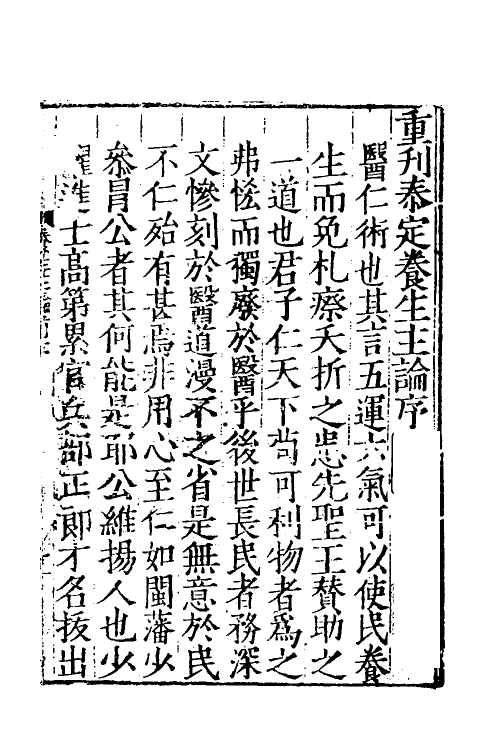 重刊泰定養生主論序
醫仁術也其言五運六氣可以使民養
生而免札瘵夭折之患先聖王贊助之
一道也君子仁天下苟可利物者爲之
弗恡而獨廢於醫乎後世長民者務深
文慘刻於醫道漫不之省是無意於民
不仁殆有甚焉非用心至仁如閩藩少
叅冒公者其何能是耶公維揚人也少
擢進士高第累官兵部正郎才名拔出